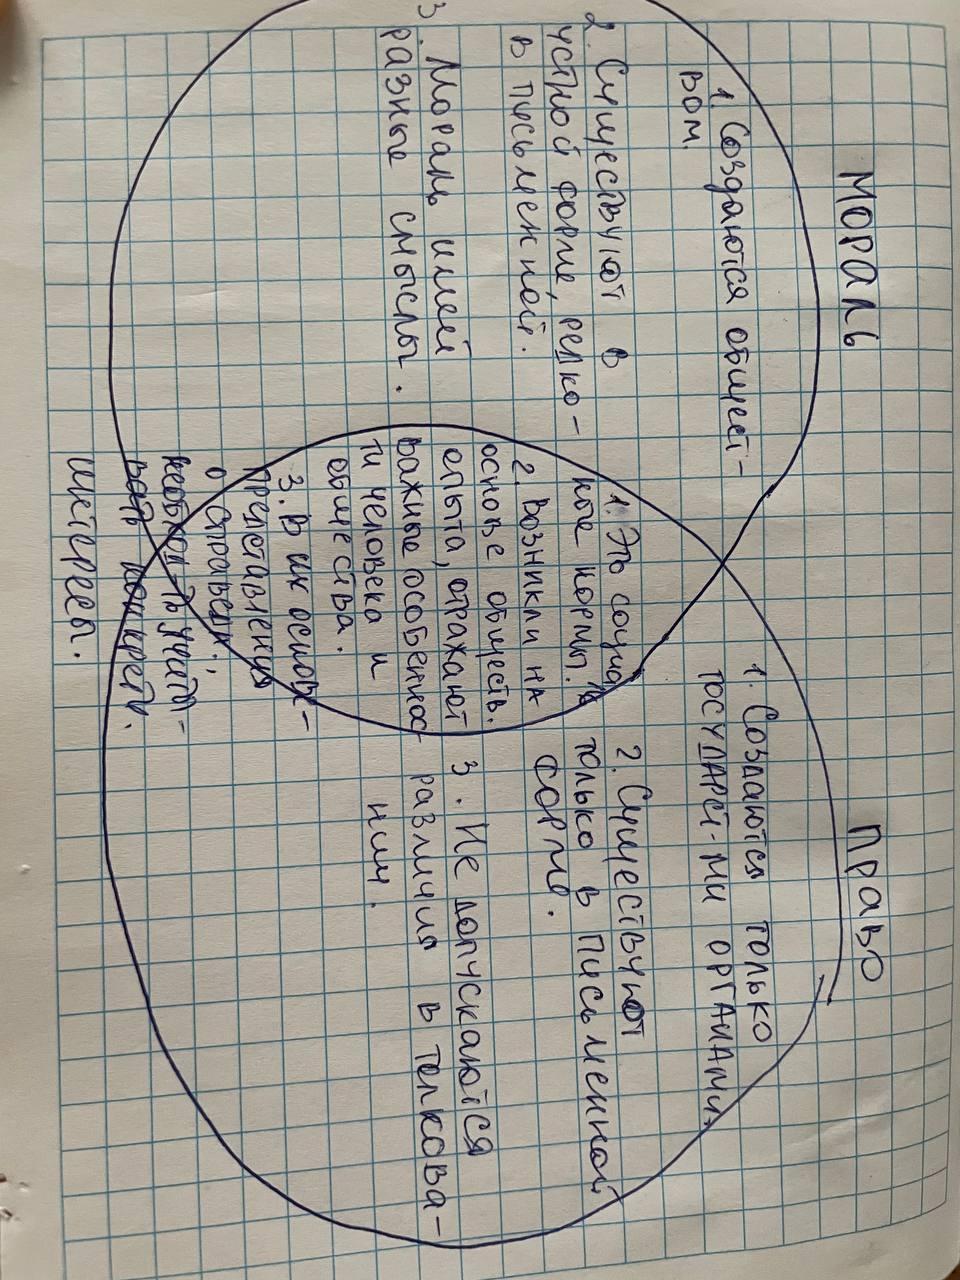 МОРАЛЬ
1. Создаются общест-
вом.
2. Существуют в
устной форме, редко-
в письменной.
3. Мораль имеет
разные смыслы.
1. Это социальные
нормы.
2. Возникли на
основе обществ.
опыта, отражают
важные особеннос-
ти человека и
общества.
3. В их основе-
представления
о справедл.,
необход-ть учиты-
вать конкретн.
интересы.
ПРАВО
1. Создаются только
государст-ми органами.
2. Существуют
только в письменной
форме.
3. Не допускаются
различия в толкова-
нии.